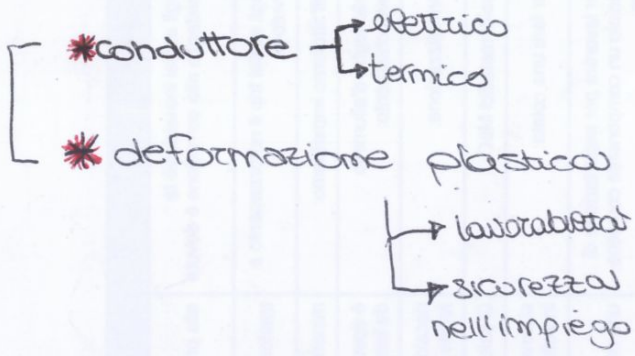 * conduttore → elettrico
→ termico
* deformazione plastica
→ lavorabilità
→ sicurezza
nell'impiego